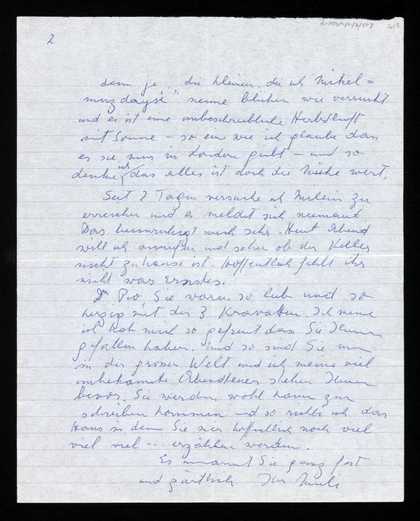 2
denn je, die kleinen, die ich Michel=
nenne blühen wie verrückt
und es ist eine unbeschreibliche Herbstluft
mit Sonne - so ein wie ich glaube dass
es sie nur in London gibt - und so
denke ich, das alles ist doch die Mühe wert.
Seit 2 Tagen versuche ich Milein zu
erreichen und es meldet sich niemand.
Das beunruhigt mich sehr. Heut Abend
will ich anrufen und sehen ob der Keller
nicht zuhause ist. Hoffentlich fehlt ihr
nicht was Ernstes.
Sie waren so lieb und so
herzig mit den 3 Kravatten. Ich meine
ich hab mich so gefreut dass Sie Ihnen
gefallen haben. Und so sind Sie nun
in der grossen Welt und ich meine viel
unbekannte Abenteuer stehen Ihnen
bevor. Sie werden wohl kaum zum
schreiben kommen und so rechne ich das
Haus in dem Sie mir hoffentlich noch viel
viel viel - erzählen werden.
Es umarmt Sie ganz fest
und zärtlich Ihr